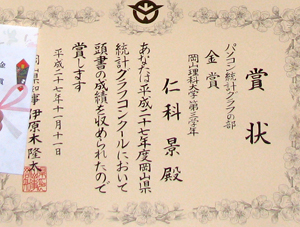 賞状
パソコン統計グラフの部
金賞
岡山理科大学 第三学年
仁科 景 殿
あなたは平成二十七年度岡山県
統計グラフコンクールにおいて
頭書の成績を収められたので
賞します
平成二十七年十一月十一日
岡山県知事 伊原木隆太